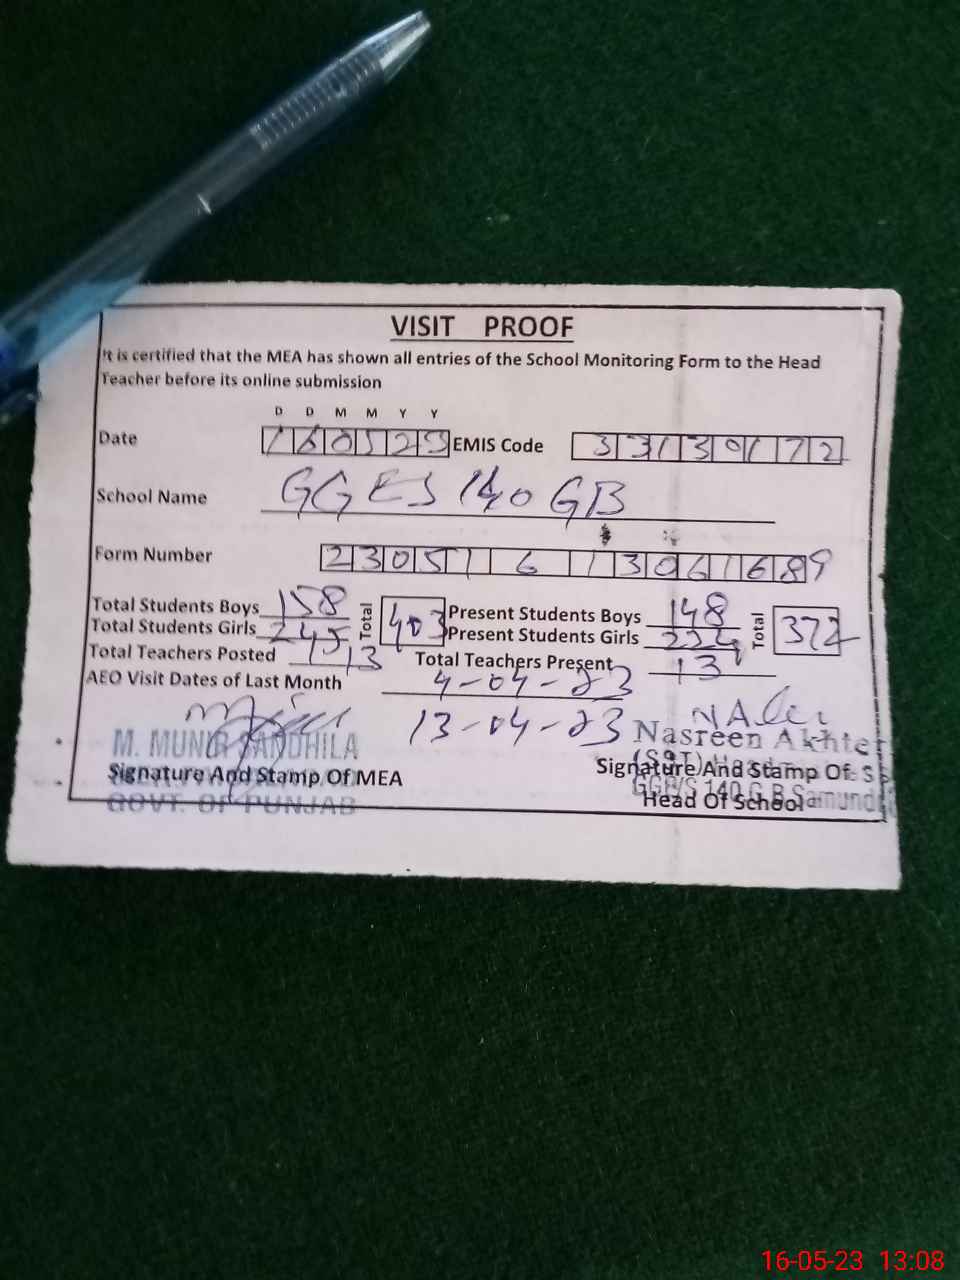 VISIT PROOF
It is certified that the MEA has shown all entries of the School Monitoring Form to the Head
Teacher before its online submission
D D M M Y Y
Date 160523 EMIS Code 33130172
School Name GGES 140 GB
Form Number 23051613061689
Total Students Boys 158 Total 403 Present Students Boys 148 Total 372
Total Students Girls 245 Present Students Girls 224
Total Teachers Posted 13 Total Teachers Present 13
AEO Visit Dates of Last Month 4-04-23
13-04-23
M. MUNIR SANDHILA Nasreen Akhter
Signature And Stamp Of MEA Signature And Stamp Of
GOVT. OF PUNJAB Head Of School
16-05-23 13:08